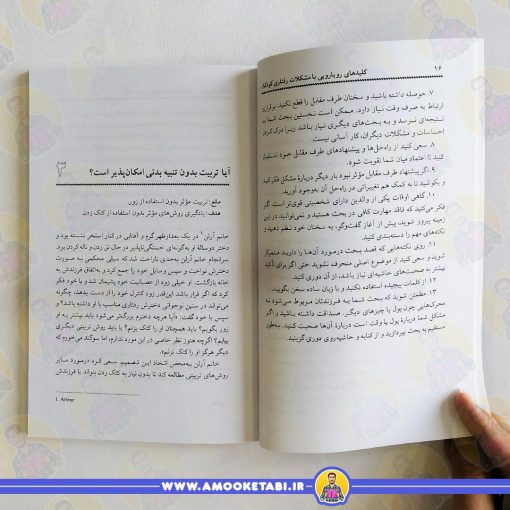 ۱۶
کلیدهای رویارویی با مشکلات رفتاری کودکان
۷. حوصله داشته باشید و سخنان طرف مقابل را قطع نکنید. برقراری
ارتباط به صرف وقت نیاز دارد. ممکن است نخستین بحث شما به
نتیجه‌ای نرسد و به بحث‌های دیگری نیاز باشد زیرا درک کردن
احساسات و مشکلات دیگران، کار آسانی نیست.
۸. سعی کنید از راه‌حل‌ها و پیشنهادهای طرف مقابل خود استقبال
کنید تا اعتماد میان شما تقویت شود.
۹. اگر پیشنهاد طرف مقابل مؤثر نبود بار دیگر درباره مشکل فکر کنید
و بکوشید تا به کمک هم تغییراتی در راه‌حل آن به‌وجود آورید.
۱۰. گاهی اوقات یکی از والدین دارای شخصیتی قوی‌تر است. اگر
فکر می‌کنید که فاقد مهارت کافی در بحث هستید و نمی‌توانید در این
زمینه پیروز شوید، پیش از آغاز گفت‌وگو، به سخنان خود نظم دهید و
نکته‌های مهم را دسته‌بندی کنید.
۱۱. روی نکته‌هایی که قصد بحث درمورد آن‌ها را دارید متمرکز
شوید و سعی کنید از موضوع اصلی منحرف نشوید حتی اگر برای تأکید
بیشتر به صحبت‌های حاشیه‌ای نیاز باشد، از آن دوری کنید.
۱۲. از کلمات پیچیده استفاده نکنید و با زبان ساده سخن بگویید.
۱۳. مطمئن شوید که بحث شما به فرزندتان مربوط می‌شود نه
محرک‌هایی چون پول یا چیزهای دیگر. صداقت داشته باشید و اگر
مشکل شما درباره پول یا وقت است درباره آن‌ها صحبت کنید. به‌طور
مستقیم به بحث بپردازید و از کنایه و حاشیه‌روی دوری گزینید.
۳
آیا تربیت بدون تنبیه بدنی امکان‌پذیر است؟
مانع: تربیت مؤثر بدون استفاده از زور.
هدف: یادگیری روش‌های مؤثر بدون استفاده از کتک زدن.
خانم آرلن¹ در یک بعدازظهر گرم و آفتابی در کنار استخر نشسته بود و
دختر دوسالهٔ او به‌گونه‌ای خستگی‌ناپذیر در حال نق زدن و ناله کردن بود.
سرانجام خانم آرلن به‌حدی ناراحت شد که سیلی محکمی به صورت
دخترش نواخت و سپس وسایل خود را جمع کرد و به‌اتفاق فرزندش به
خانه بازگشت. او خیلی زود از عصبانیت خود پشیمان شد و با خود فکر
کرد که اگر قرار باشد این‌قدر زود کنترل خود را از دست بدهد، چگونه
می‌تواند در سنین نوجوانی دخترش رفتاری مناسب با او داشته باشد؟ و
سپس با خود گفت: «آیا هرچه دخترم بزرگ‌تر می‌شود باید بیشتر به او
زور بگویم؟ باید همچنان او را کتک بزنم؟ یا باید روش تربیتی دیگری
بیابم؟ اگرچه هنوز نظر خاصی در این مورد ندارم، اما سوگند می‌خورم که
دیگر هرگز او را کتک نزنم».
خانم آرلن به‌محض اتخاذ این تصمیم، سعی کرد درمورد سایر
روش‌های تربیتی مطالعه کند تا بدون نیاز به کتک زدن بتواند با فرزندش
1. Arlene
WWW.AMOOKETABI.IR